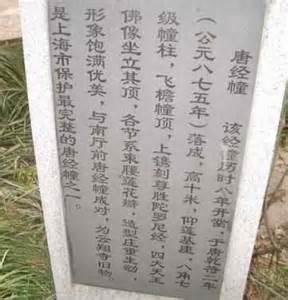 唐经幢
该经幢历时八年开凿，于唐乾符二年
（公元八七五年）落成，高十米，仰莲基座，八角七
级幢柱，飞檐幢顶，上镌刻尊胜陀罗尼经，四大天王
佛像坐立其顶，各节系束腰莲花瓣，造型庄重生动，
形象饱满优美，与南厅前唐经幢成对，为云翔寺旧物，
是上海市保护最完整的唐经幢之一。